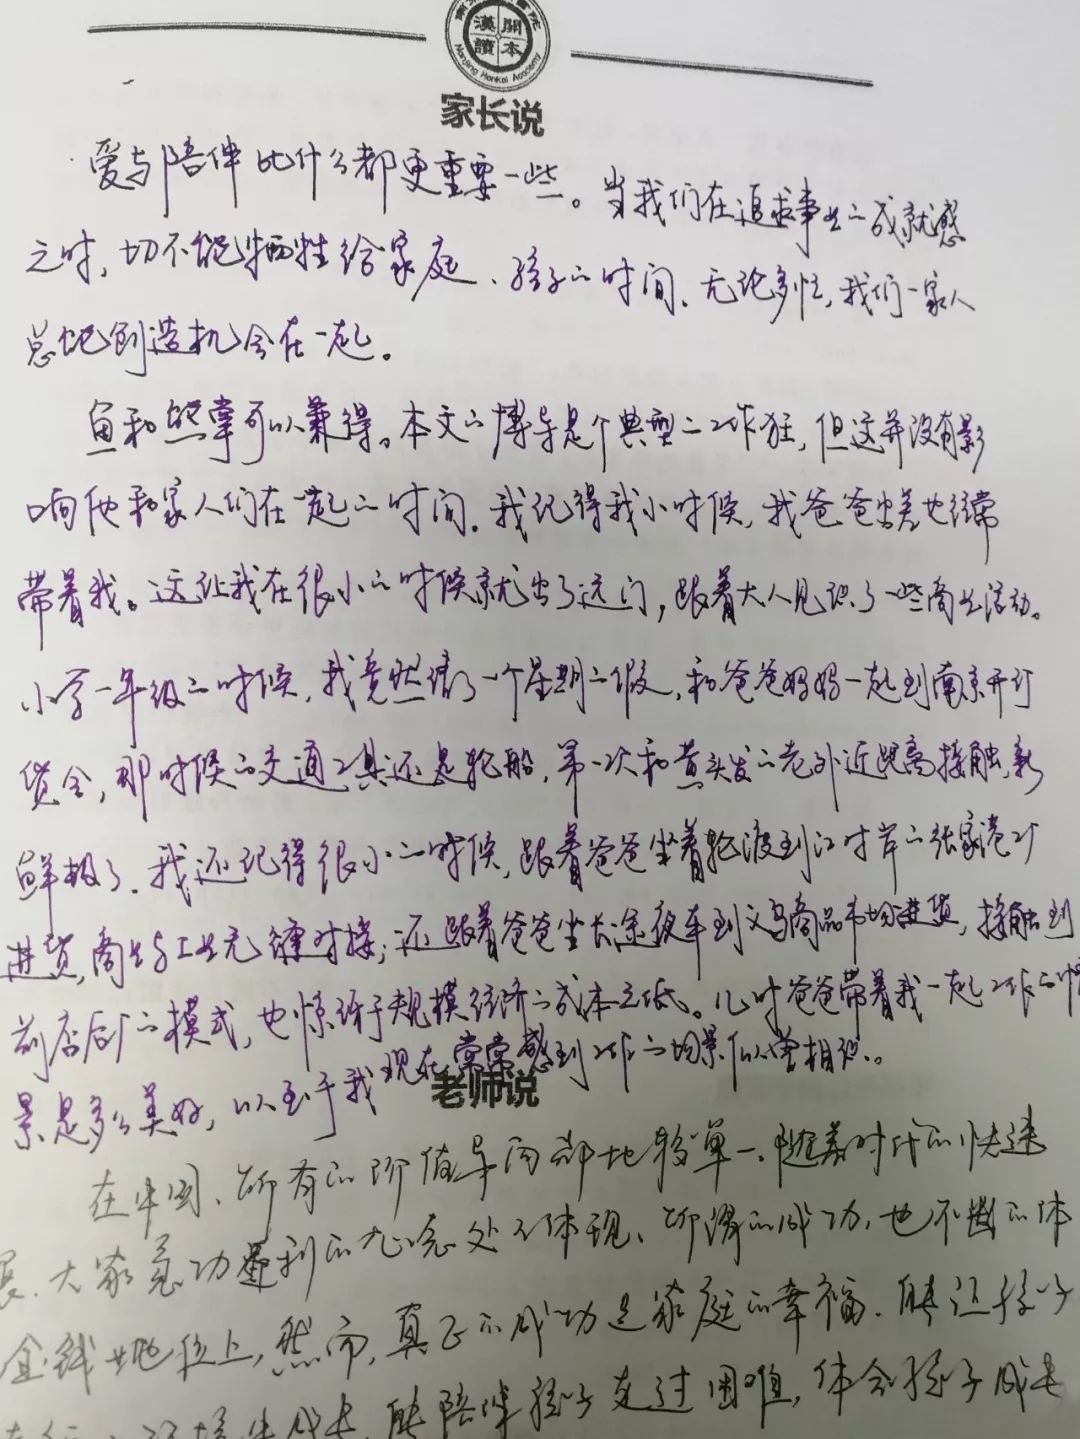 漢開
讀本
Nanjing Hankai Academy
家长说
爱与陪伴比什么都更重要一些。当我们在追求事业的成就感
之时，切不能牺牲给家庭、孩子的时间。无论多忙，我们一家人
总能创造机会在一起。
鱼和熊掌可以兼得。本文的博导是个典型工作狂，但这并没有影
响他和家人们在一起的时间。我记得我小时候，我爸爸出差也经常
带着我。这让我在很小的时候就出了远门，跟着大人见识了一些商业活动。
小学一年级的时候，我竟然请了一个星期的假，和爸爸妈妈一起到南京开订
货会，那时候的交通工具还是轮船，第一次和黄头发的老外近距离接触，新
鲜极了。我还记得很小的时候，跟着爸爸坐着轮渡到江对岸的张家港厂
进货，商业与工业无缝对接；还跟着爸爸坐长途夜车到义乌商品市场进货，接触到
前店后厂的模式，也惊讶于规模经济的成本之低。儿时爸爸带着我一起工作的情
景是多么美好，以至于我现在常常感到工作的场景似曾相识。
老师说
在中国，所有的价值导向都比较单一。随着时代的快速
展，大家急功近利的心态处处体现，所谓的成功，也不断的体
金钱地位上，然而，真正的成功是家庭的幸福。能让孩子
成长，能陪伴孩子走过困难，体会孩子成长